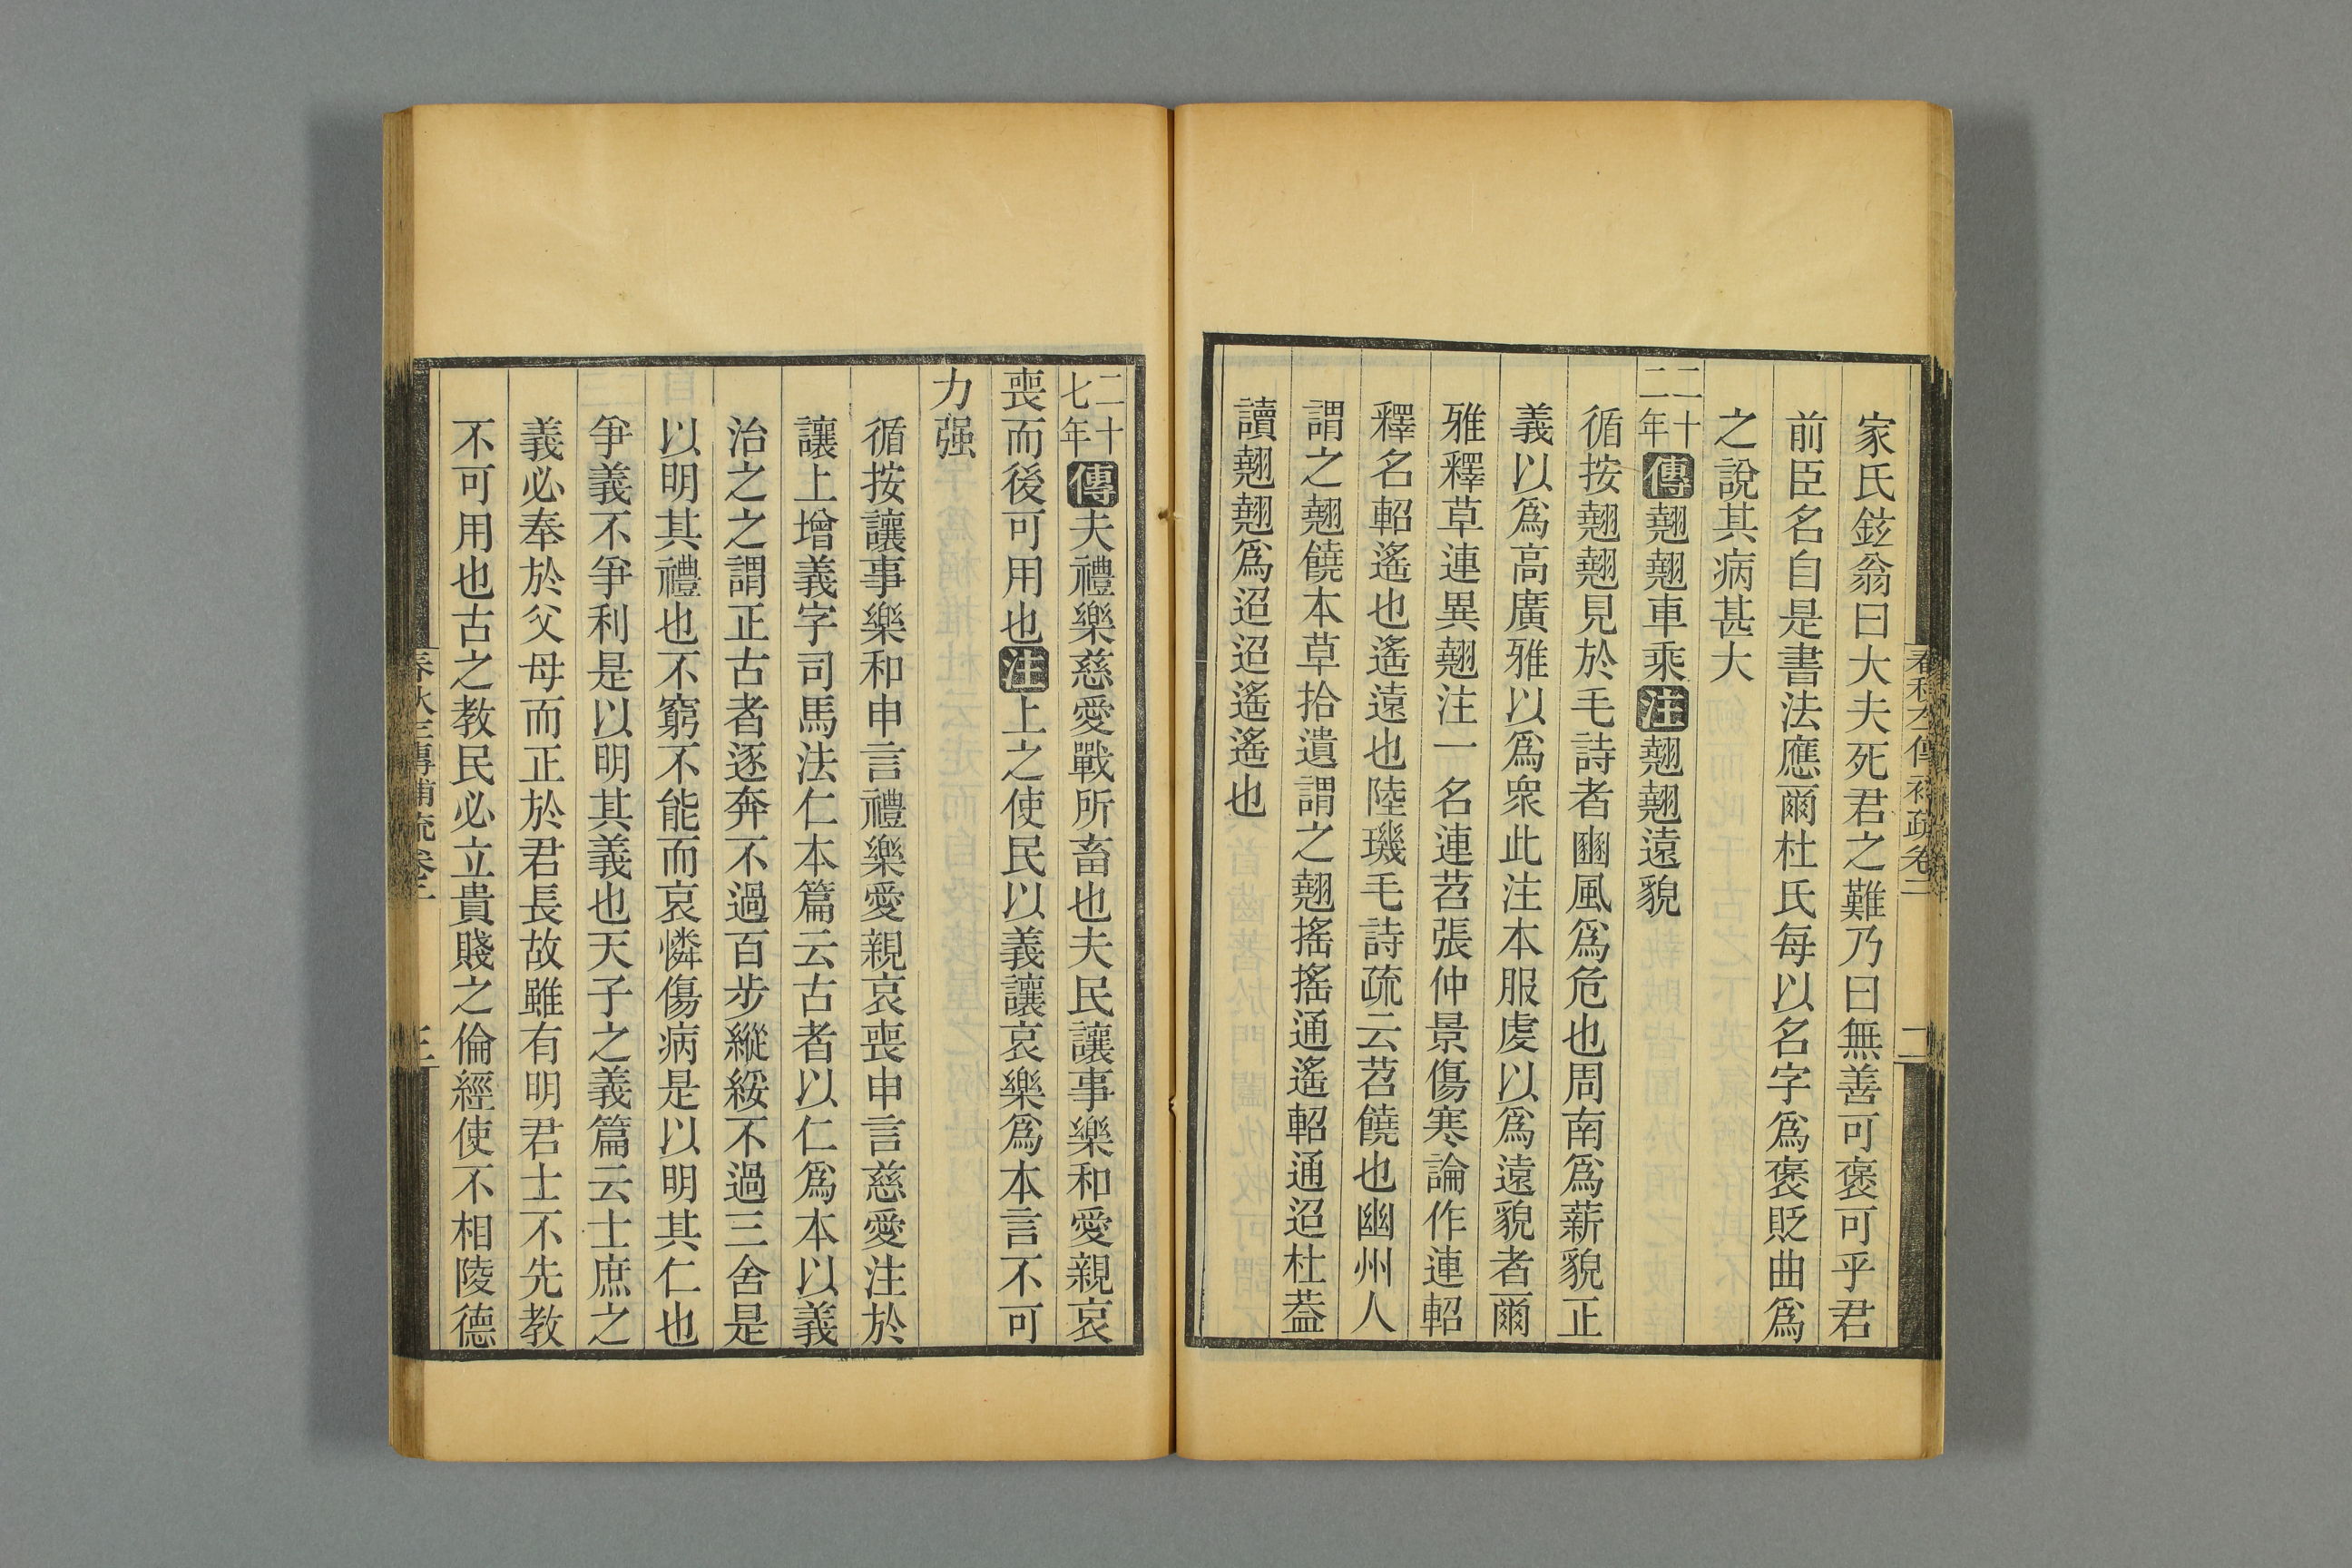 家氏鉉翁曰大夫死君之難乃曰無善可褒可乎君
前臣名自是書法應爾杜氏每以名字爲褒貶曲爲
之說其病甚大
二十二年傳翹翹車乘注翹翹遠貌
循按翹翹見於毛詩者豳風爲危也周南爲薪貌正
義以爲高廣雅以爲衆此注本服虔以爲遠貌者爾
雅釋草連異翹注一名連苕張仲景傷寒論作連軺
釋名軺遙也遙遠也陸璣毛詩疏云苕饒也幽州人
謂之翹饒本草拾遺謂之翹搖搖通遙軺通迢杜葢
讀翹翹爲迢迢遙遙也
春秋左傳補疏卷二
二
二十七年傳夫禮樂慈愛戰所畜也夫民讓事樂和愛親哀
喪而後可用也注上之使民以義讓哀樂爲本言不可
力强
循按讓事樂和申言禮樂愛親哀喪申言慈愛注於
讓上增義字司馬法仁本篇云古者以仁爲本以義
治之之謂正古者逐奔不過百步縱綏不過三舍是
以明其禮也不窮不能而哀憐傷病是以明其仁也
爭義不爭利是以明其義也天子之義篇云士庶之
義必奉於父母而正於君長故雖有明君士不先教
不可用也古之教民必立貴賤之倫經使不相陵德
春秋左傳補疏卷二
三